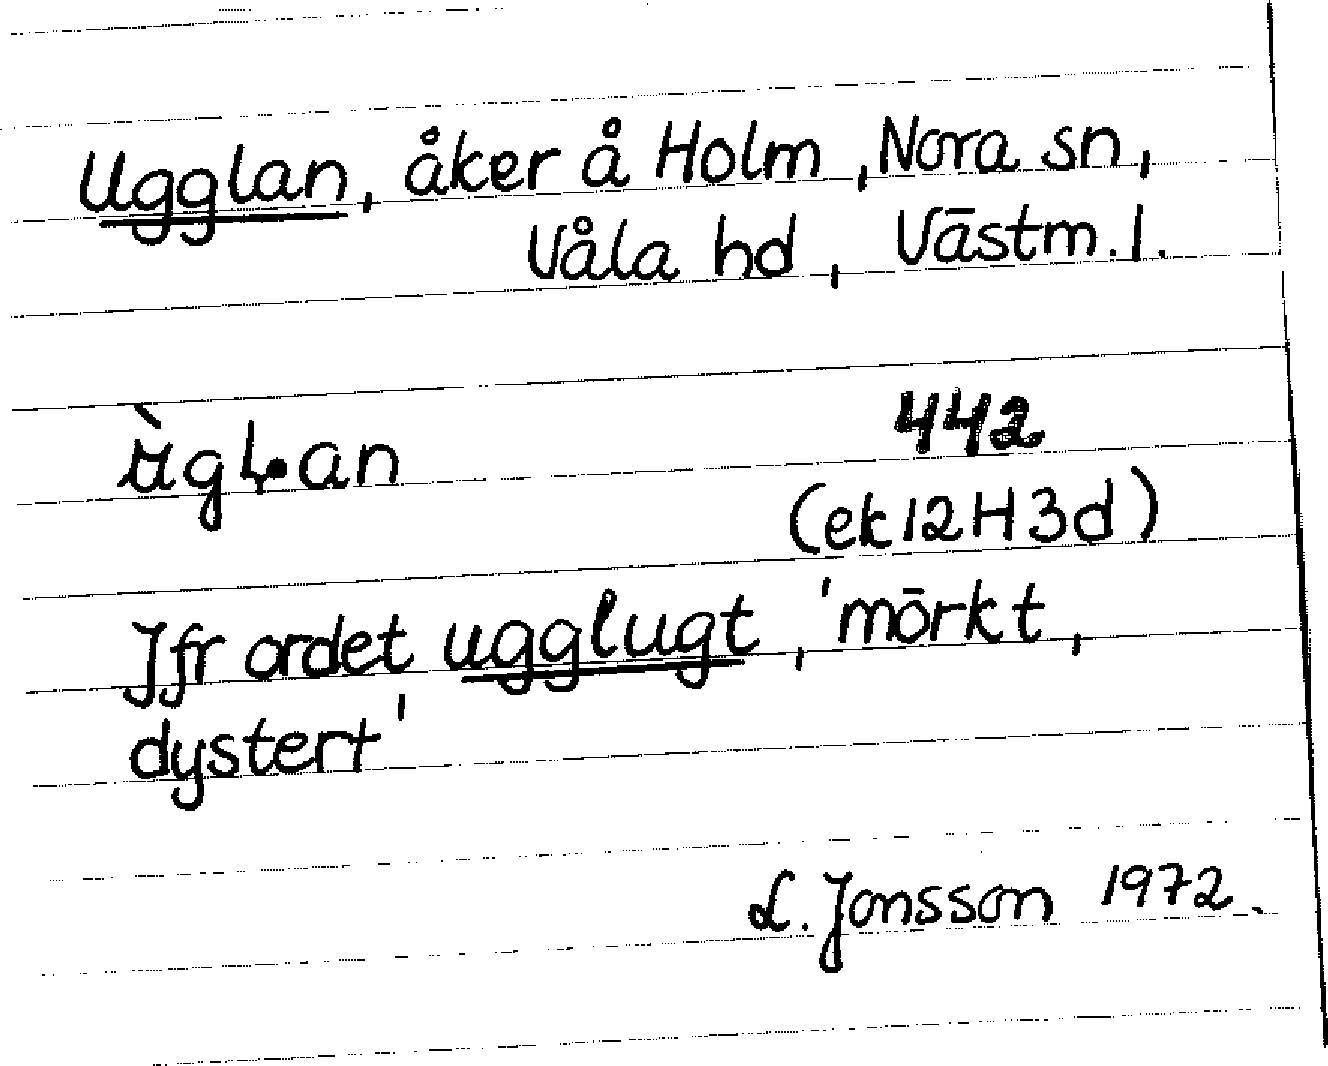 Ugglan, åker å Holm, Nora sn,
Våla hd, Västm. l.
442
(ek 12H3d)
Jfr ordet ugglugt, 'mörkt,
dystert'
L. Jonsson 1972.